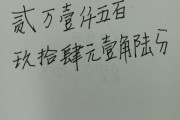 贰万壹仟五百
玖拾肆元壹角陆分